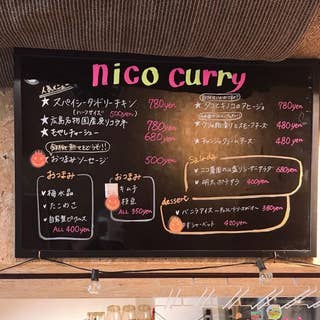 nico curry
人気メニュー
★ スパイシータンドリーチキン 780yen
(ハーフサイズ 500yen)
★ 広島名物 780yen
★ もやしチャーシュー 480yen
おつまみソーセージ 500yen
★ タコとキノコのアヒージョ 780yen
スモークチーズ 480yen
★ チャンジャクリームチーズ 480yen
Salada
680yen
明太ポテサラ 400yen
dessert
バニラアイス 380yen
シャーベット 420yen
おつまみ
梅水晶
たこわさ
自家製ピクルス
ALL 400yen
おつまみ
キムチ
枝豆
ALL 350yen